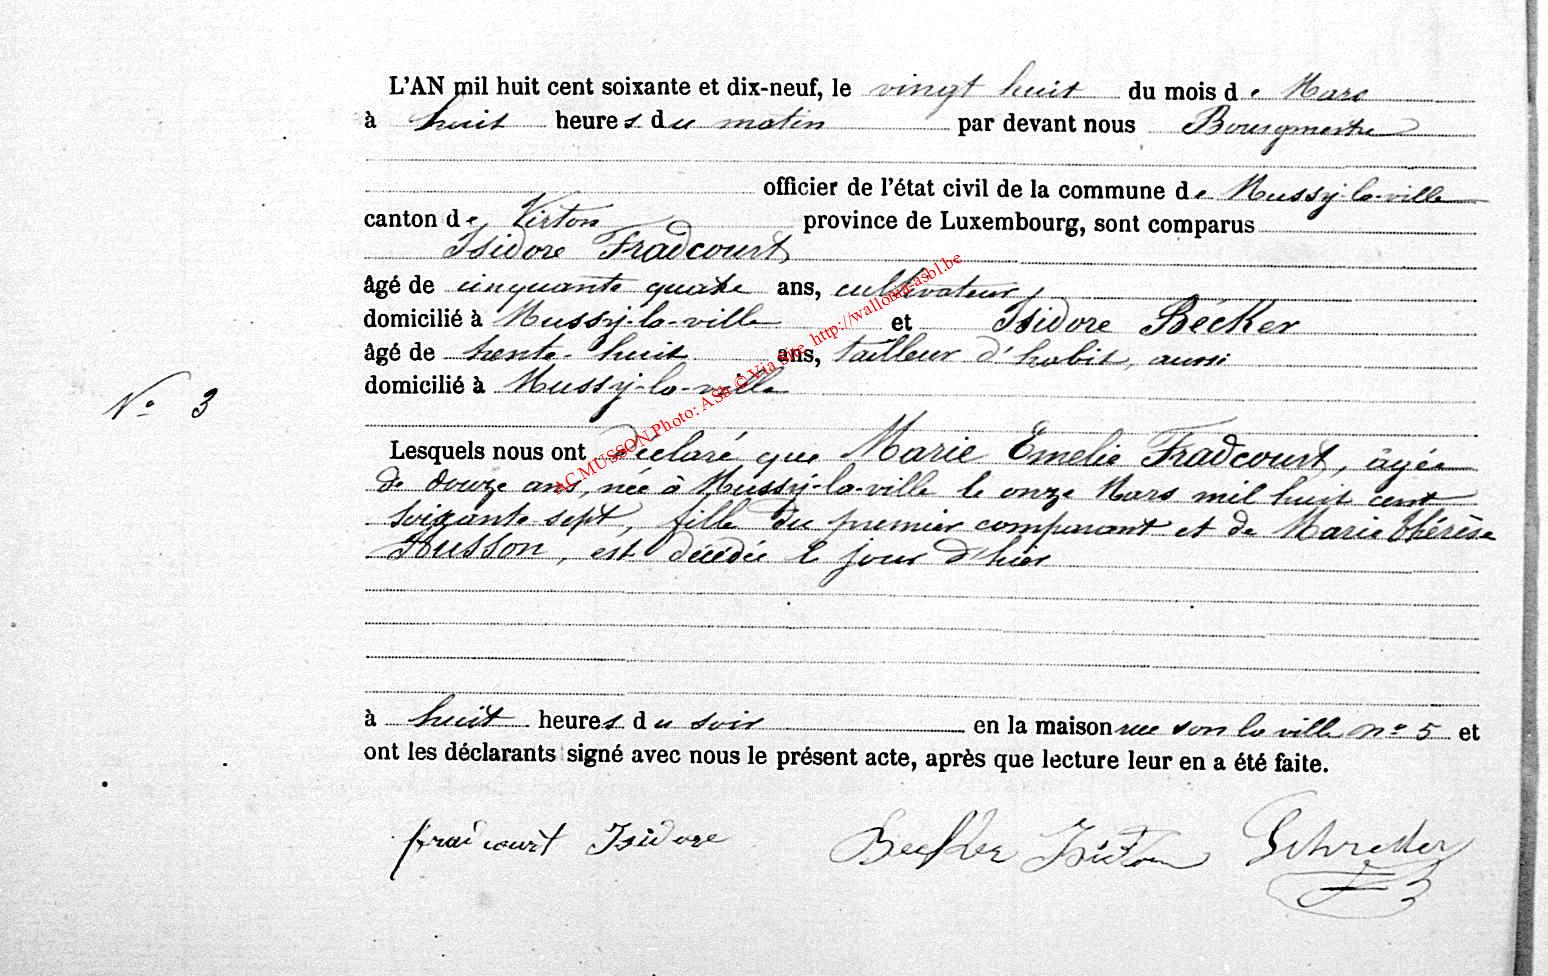 L'AN mil huit cent soixante et dix-neuf, le vingt huit du mois de Mars
à huit heures du matin par devant nous Bourgmestre
officier de l'état civil de la commune de Mussy-la-ville
canton de Virton province de Luxembourg, sont comparus
Isidore Fradcourt
âgé de cinquante quatre ans, cultivateur
domicilié à Mussy-la-ville et Isidore Bécker
âgé de trente-huit ans, tailleur d'habit, aussi
domicilié à Mussy-la-ville
N° 3
Lesquels nous ont déclaré que Marie Emelie Fradcourt, âgée
de douze ans, née à Mussy-la-ville le onze Mars mil huit cent
soixante-sept, fille du premier comparant et de Marie Thérèse
Husson, est décédée le jour d'hier
à huit heures du soir en la maison rue son la ville n° 5 et
ont les déclarants signé avec nous le présent acte, après que lecture leur en a été faite.
fradcourt Isidore Becker Isidore
ACMUSSON Photo: ASb © Via site http://wallonia-asbl.be